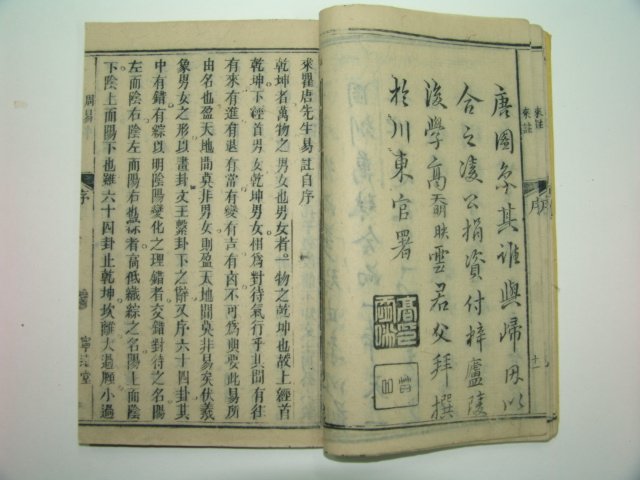 來註
來註
序
十一
唐其誰與歸因以
合之凌公捐資付梓廬陵
後學高奣暎雲君父拜撰
於川東官署
來瞿唐先生易註自序
乾坤者萬物之男女也男女者一物之乾坤也故上經首
乾坤下經首男女乾坤男女相為對待氣行乎其間有往
有來有進有退有常有變有吉有凶不可為典要此易所
由名也盈天地間莫非男女則盈天地間莫非易矣伏羲
象男女之形以畫卦文王繫卦下之辭又序六十四卦其
中有錯有綜以明陰陽變化之理錯者交錯對待之名陽
左而陰右陰左而陽右也綜者高低織綜之名陽上而陰
下陰上而陽下也雖六十四卦止乾坤坎離大過頤小過
周易
序
堂